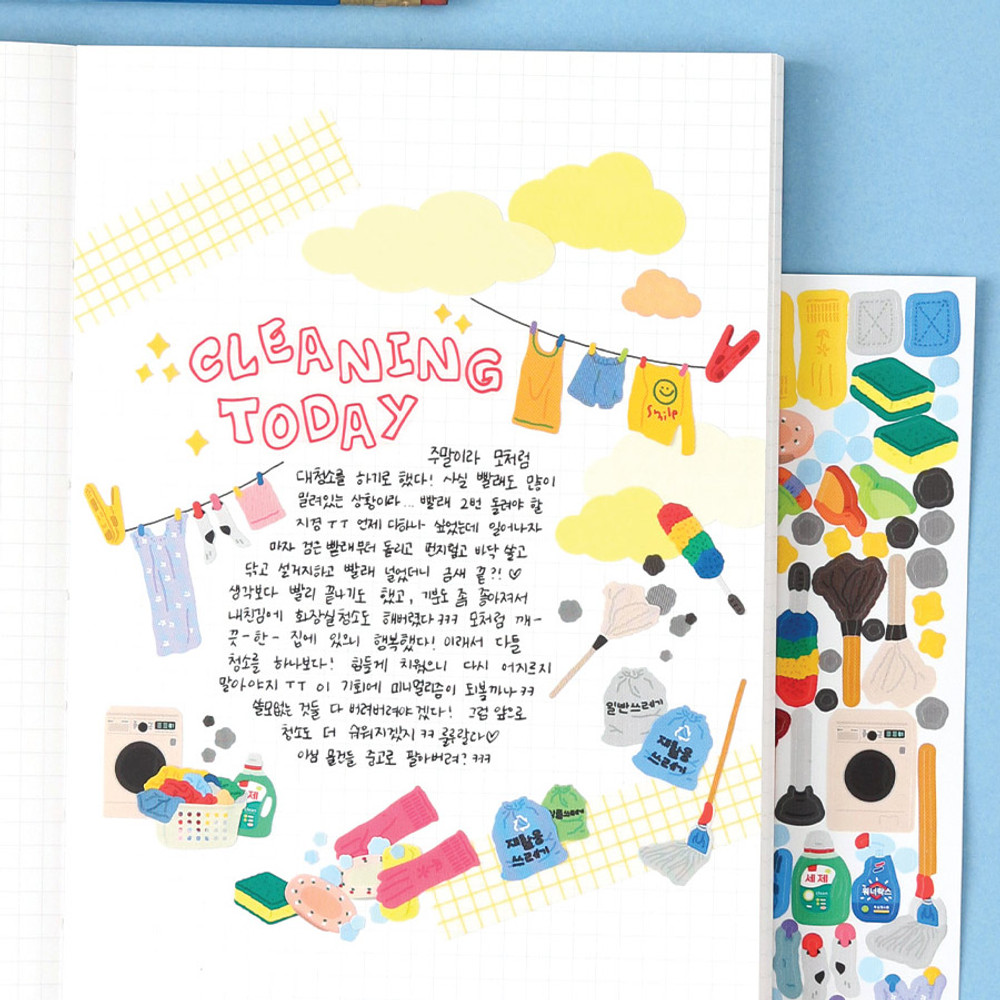 CLEANING
TODAY
Smile
주말이라 모처럼
대청소를 하기로 했다! 사실 빨래도 많이
밀려있는 상황이라... 빨래 2번 돌려야 할
지경 ㅜㅜ 언제 다하나 싶었는데 일어나자
마자 검은빨래부터 돌리고 먼지털고 바닥 쓸고
닦고 설거지하고 빨래 널었더니 금새 끝?! ♡
생각보다 빨리 끝나기도 했고, 기분도 좀 좋아져서
내친김에 화장실청소도 해버렸다ㅋㅋㅋ 모처럼 깨-
끗-한- 집에 있으니 행복했다! 이래서 다들
청소를 하나보다! 힘들게 치웠으니 다시 어지르지
말아야지 ㅜㅜ 이 기회에 미니멀리즘이 되볼까나ㅋㅋ
쓸모없는 것들 다 버려버려야겠다! 그럼 앞으로
청소도 더 쉬워지겠지 ㅋㅋ 룰루랄라♡
아낌 물건들 중고로 팔아버려? ㅋㅋㅋ
일반쓰레기
재활용
쓰레기
세제
재활용
쓰레기
세제